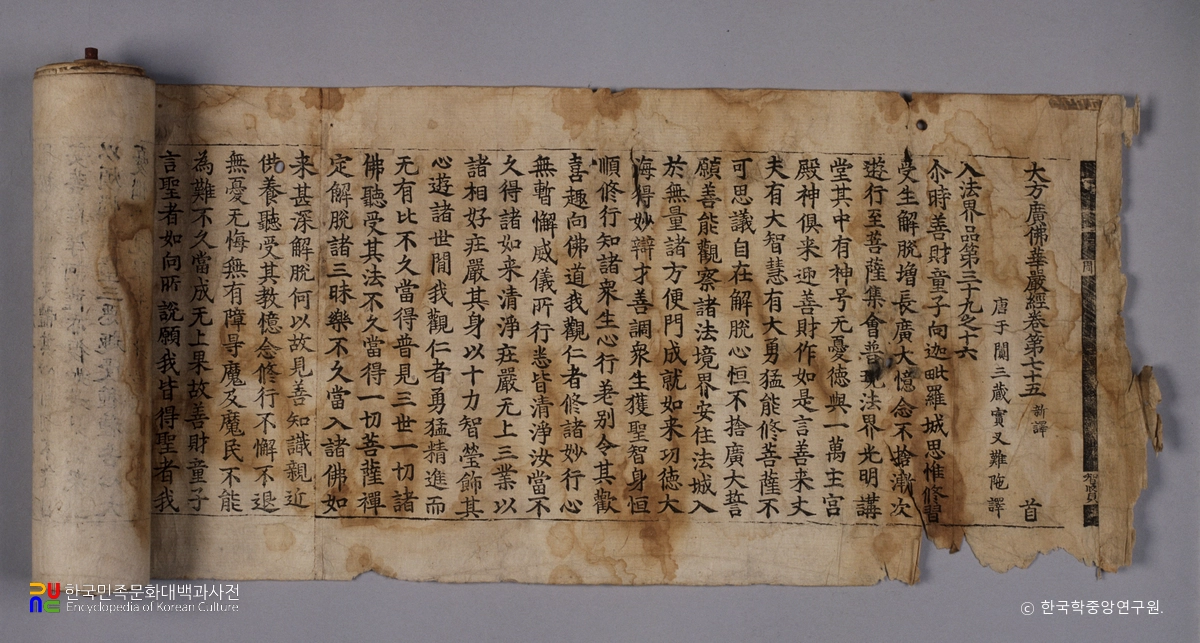 大方廣佛華嚴經卷第七十五 新譯 首
唐于闐三藏實叉難陁譯
入法界品第三十九之十六
尒時善財童子向迦毗羅城思惟修習
受生解脫增長廣大憶念不捨漸次
遊行至菩薩集會普現法界光明講
堂其中有神号无憂德與一萬主宮
殿神俱来迎善財作如是言善来丈
夫有大智慧有大勇猛能修菩薩不
可思議自在解脫心恒不捨廣大誓
願善能觀察諸法境界安住法城入
於無量諸方便門成就如来功德大
海得妙辯才善調衆生獲聖智身恒
順修行知諸衆生心行差别令其歡
喜趣向佛道我觀仁者修諸妙行心
無暫懈威儀所行悉皆清淨汝當不
久得諸如来清淨莊嚴无上三業以
諸相好莊嚴其身以十力智瑩飾其
心遊諸世閒我觀仁者勇猛精進而
无有比不久當得普見三世一切諸
佛聽受其法不久當得一切菩薩禪
定解脫諸三昧樂不久當入諸佛如
来甚深解脫何以故見善知識親近
供養聽受其教憶念修行不懈不退
無憂无悔無有障㝵魔及魔民不能
為難不久當成无上果故善財童子
言聖者如向所說願我皆得聖者我
한국민족문화대백과사전
Encyclopedia of Korean Culture
© 한국학중앙연구원.